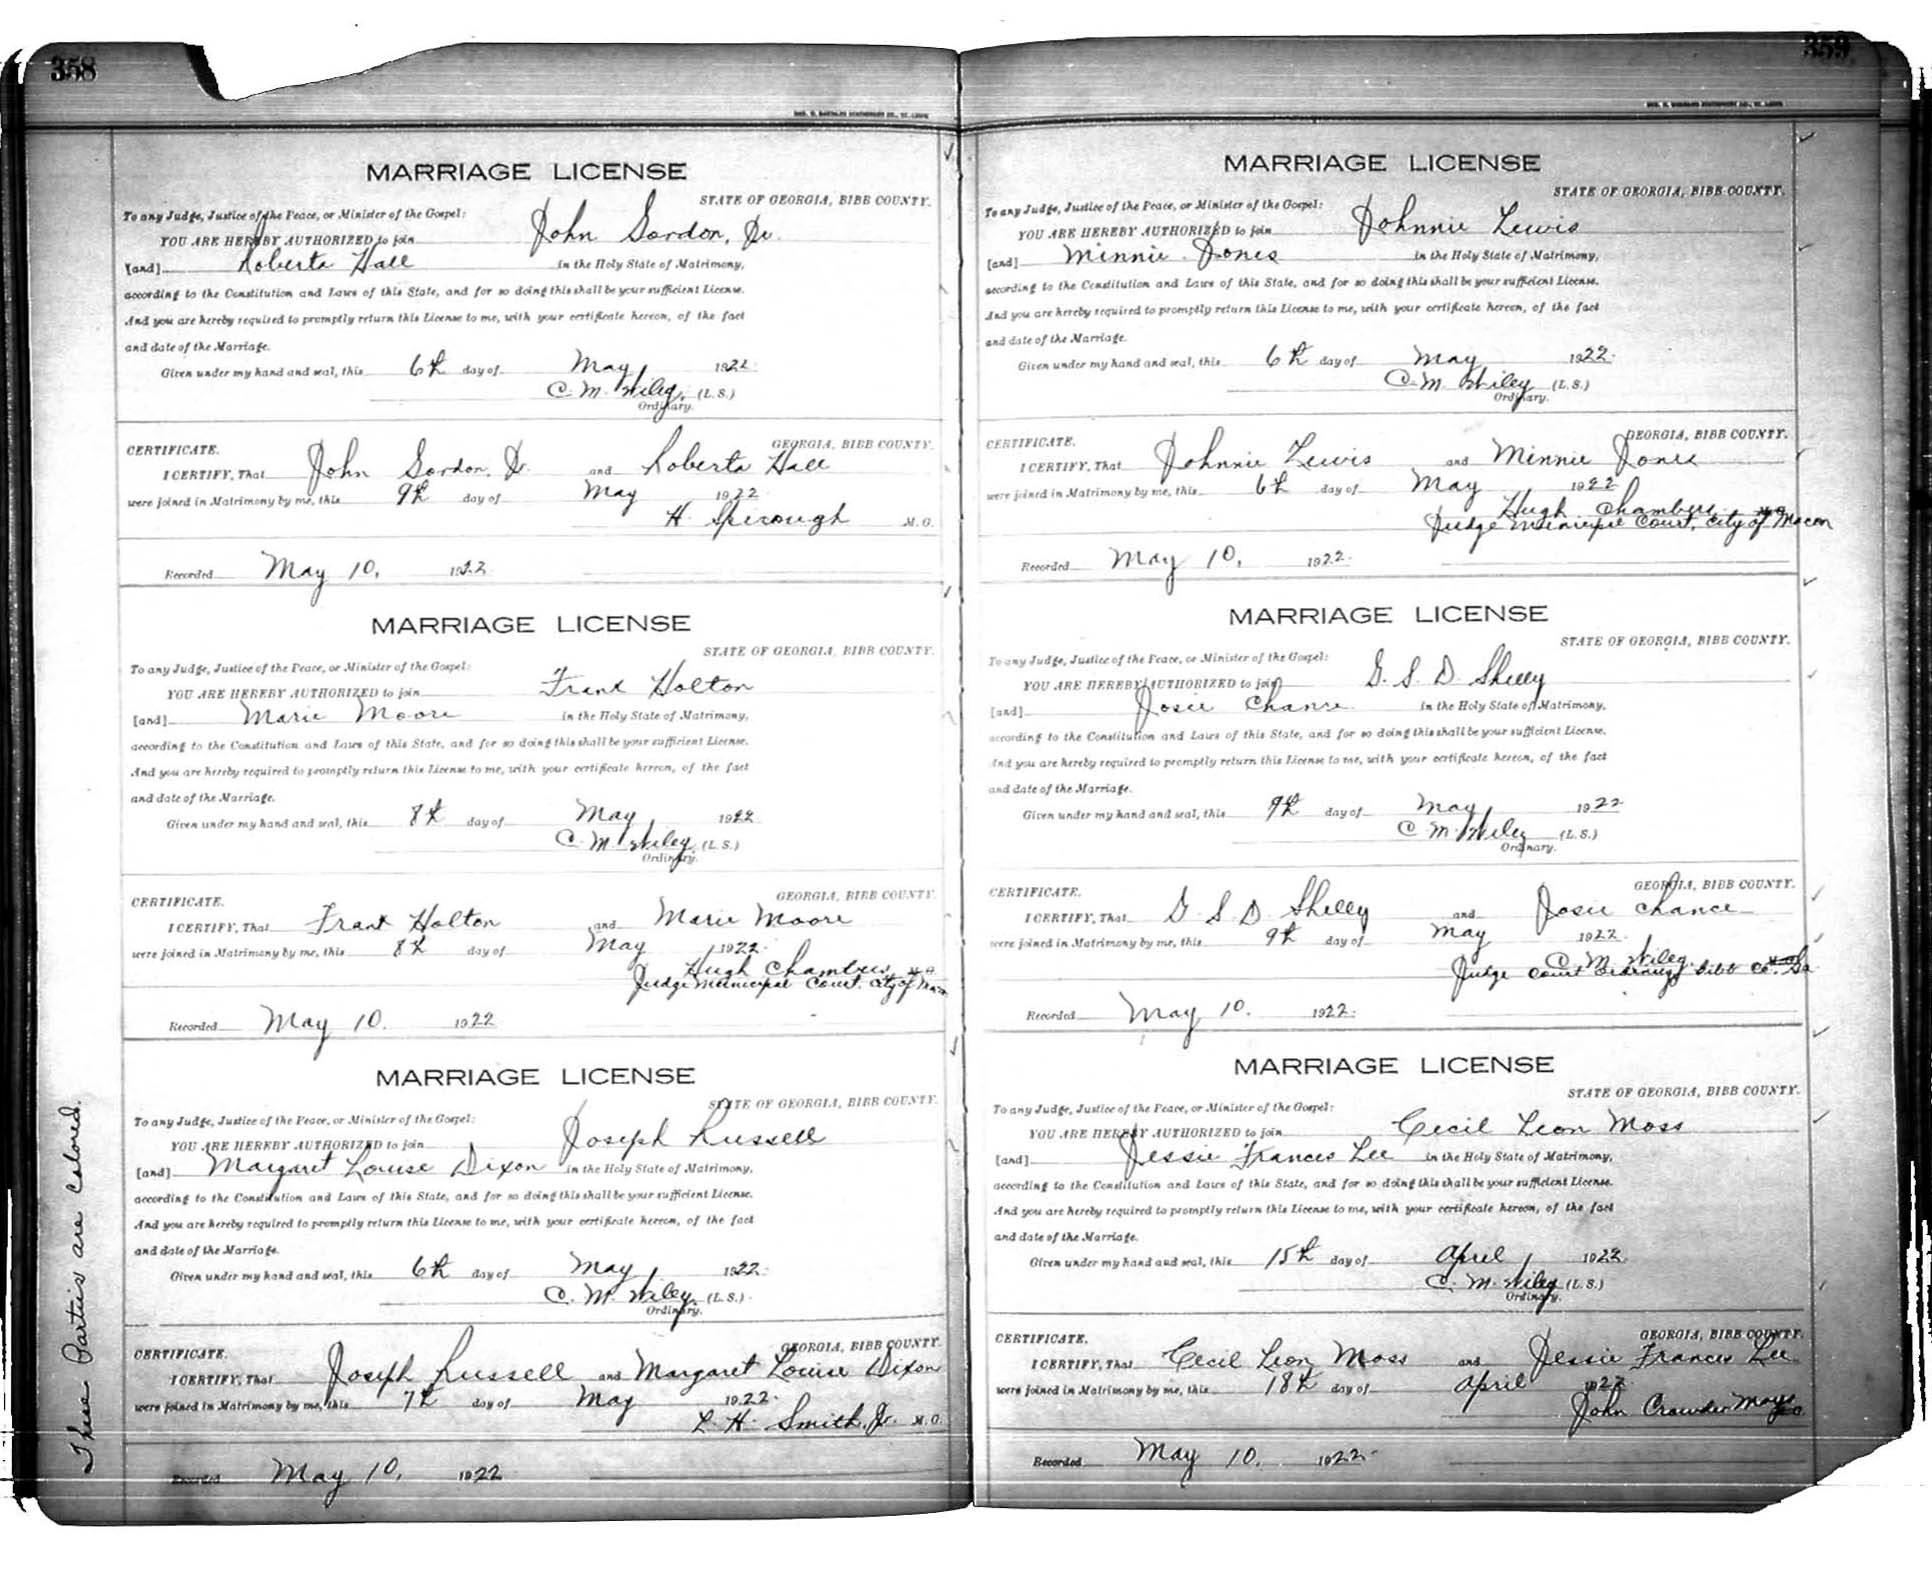 358
MARRIAGE LICENSE
STATE OF GEORGIA, BIBB COUNTY.
To any Judge, Justice of the Peace, or Minister of the Gospel:
YOU ARE HEREBY AUTHORIZED to join John Gordon, Jr.
[and] Roberta Hall in the Holy State of Matrimony,
according to the Constitution and Laws of this State, and for so doing this shall be your sufficient License.
And you are hereby required to promptly return this License to me, with your certificate hereon, of the fact
and date of the Marriage.
Given under my hand and seal, this 6th day of May 1922.
C. M. Wiley. (L.S.)
Ordinary.
CERTIFICATE. GEORGIA, BIBB COUNTY.
I CERTIFY, That John Gordon, Jr. and Roberta Hall
were joined in Matrimony by me, this 9th day of May 1922
H. M.G.
Recorded May 10, 1922
MARRIAGE LICENSE
STATE OF GEORGIA, BIBB COUNTY.
To any Judge, Justice of the Peace, or Minister of the Gospel:
YOU ARE HEREBY AUTHORIZED to join Frank Holton
[and] Marie Moore in the Holy State of Matrimony,
according to the Constitution and Laws of this State, and for so doing this shall be your sufficient License.
And you are hereby required to promptly return this License to me, with your certificate hereon, of the fact
and date of the Marriage.
Given under my hand and seal, this 8th day of May 1922
C. M. Wiley. (L.S.)
Ordinary.
CERTIFICATE. GEORGIA, BIBB COUNTY.
I CERTIFY, That Frank Holton and Marie Moore
were joined in Matrimony by me, this 8th day of May 1922.
Hugh Chambers
Judge Municipal Court, City of Macon
Recorded May 10. 1922
MARRIAGE LICENSE
STATE OF GEORGIA, BIBB COUNTY.
To any Judge, Justice of the Peace, or Minister of the Gospel:
YOU ARE HEREBY AUTHORIZED to join Joseph Russell
[and] Margaret Louise Dixon in the Holy State of Matrimony,
according to the Constitution and Laws of this State, and for so doing this shall be your sufficient License.
And you are hereby required to promptly return this License to me, with your certificate hereon, of the fact
and date of the Marriage.
Given under my hand and seal, this 6th day of May 1922.
C. M. Wiley. (L.S.)
Ordinary.
CERTIFICATE. GEORGIA, BIBB COUNTY.
I CERTIFY, That Joseph Russell and Margaret Louise Dixon
were joined in Matrimony by me, this 7th day of May 1922.
L. H. Smith, Jr. M.G.
Recorded May 10, 1922
These Parties are colored.
359
MARRIAGE LICENSE
STATE OF GEORGIA, BIBB COUNTY.
To any Judge, Justice of the Peace, or Minister of the Gospel:
YOU ARE HEREBY AUTHORIZED to join Johnnie Lewis
[and] Minnie Jones in the Holy State of Matrimony,
according to the Constitution and Laws of this State, and for so doing this shall be your sufficient License.
And you are hereby required to promptly return this License to me, with your certificate hereon, of the fact
and date of the Marriage.
Given under my hand and seal, this 6th day of May 1922.
C. M. Wiley (L.S.)
Ordinary.
CERTIFICATE. GEORGIA, BIBB COUNTY.
I CERTIFY, That Johnnie Lewis and Minnie Jones
were joined in Matrimony by me, this 6th day of May 1922
Hugh Chambers
Judge Municipal Court, City of Macon
Recorded May 10, 1922.
MARRIAGE LICENSE
STATE OF GEORGIA, BIBB COUNTY.
To any Judge, Justice of the Peace, or Minister of the Gospel:
YOU ARE HEREBY AUTHORIZED to join G. S. D. Shelly
[and] Josie Chance in the Holy State of Matrimony,
according to the Constitution and Laws of this State, and for so doing this shall be your sufficient License.
And you are hereby required to promptly return this License to me, with your certificate hereon, of the fact
and date of the Marriage.
Given under my hand and seal, this 9th day of May 1922
C. M. Wiley (L.S.)
Ordinary.
CERTIFICATE. GEORGIA, BIBB COUNTY.
I CERTIFY, That G. S. D. Shelly and Josie Chance
were joined in Matrimony by me, this 9th day of May 1922.
C. M. Wiley.
Judge Court Ordinary Bibb Co. Ga
Recorded May 10. 1922.
MARRIAGE LICENSE
STATE OF GEORGIA, BIBB COUNTY.
To any Judge, Justice of the Peace, or Minister of the Gospel:
YOU ARE HEREBY AUTHORIZED to join Cecil Leon Moss
[and] Jessie Frances Lee in the Holy State of Matrimony,
according to the Constitution and Laws of this State, and for so doing this shall be your sufficient License.
And you are hereby required to promptly return this License to me, with your certificate hereon, of the fact
and date of the Marriage.
Given under my hand and seal, this 15th day of April 1922.
C. M. Wiley (L.S.)
Ordinary.
CERTIFICATE. GEORGIA, BIBB COUNTY.
I CERTIFY, That Cecil Leon Moss and Jessie Frances Lee
were joined in Matrimony by me, this 18th day of April 1922
John Crowder Mays
Recorded May 10. 1922.